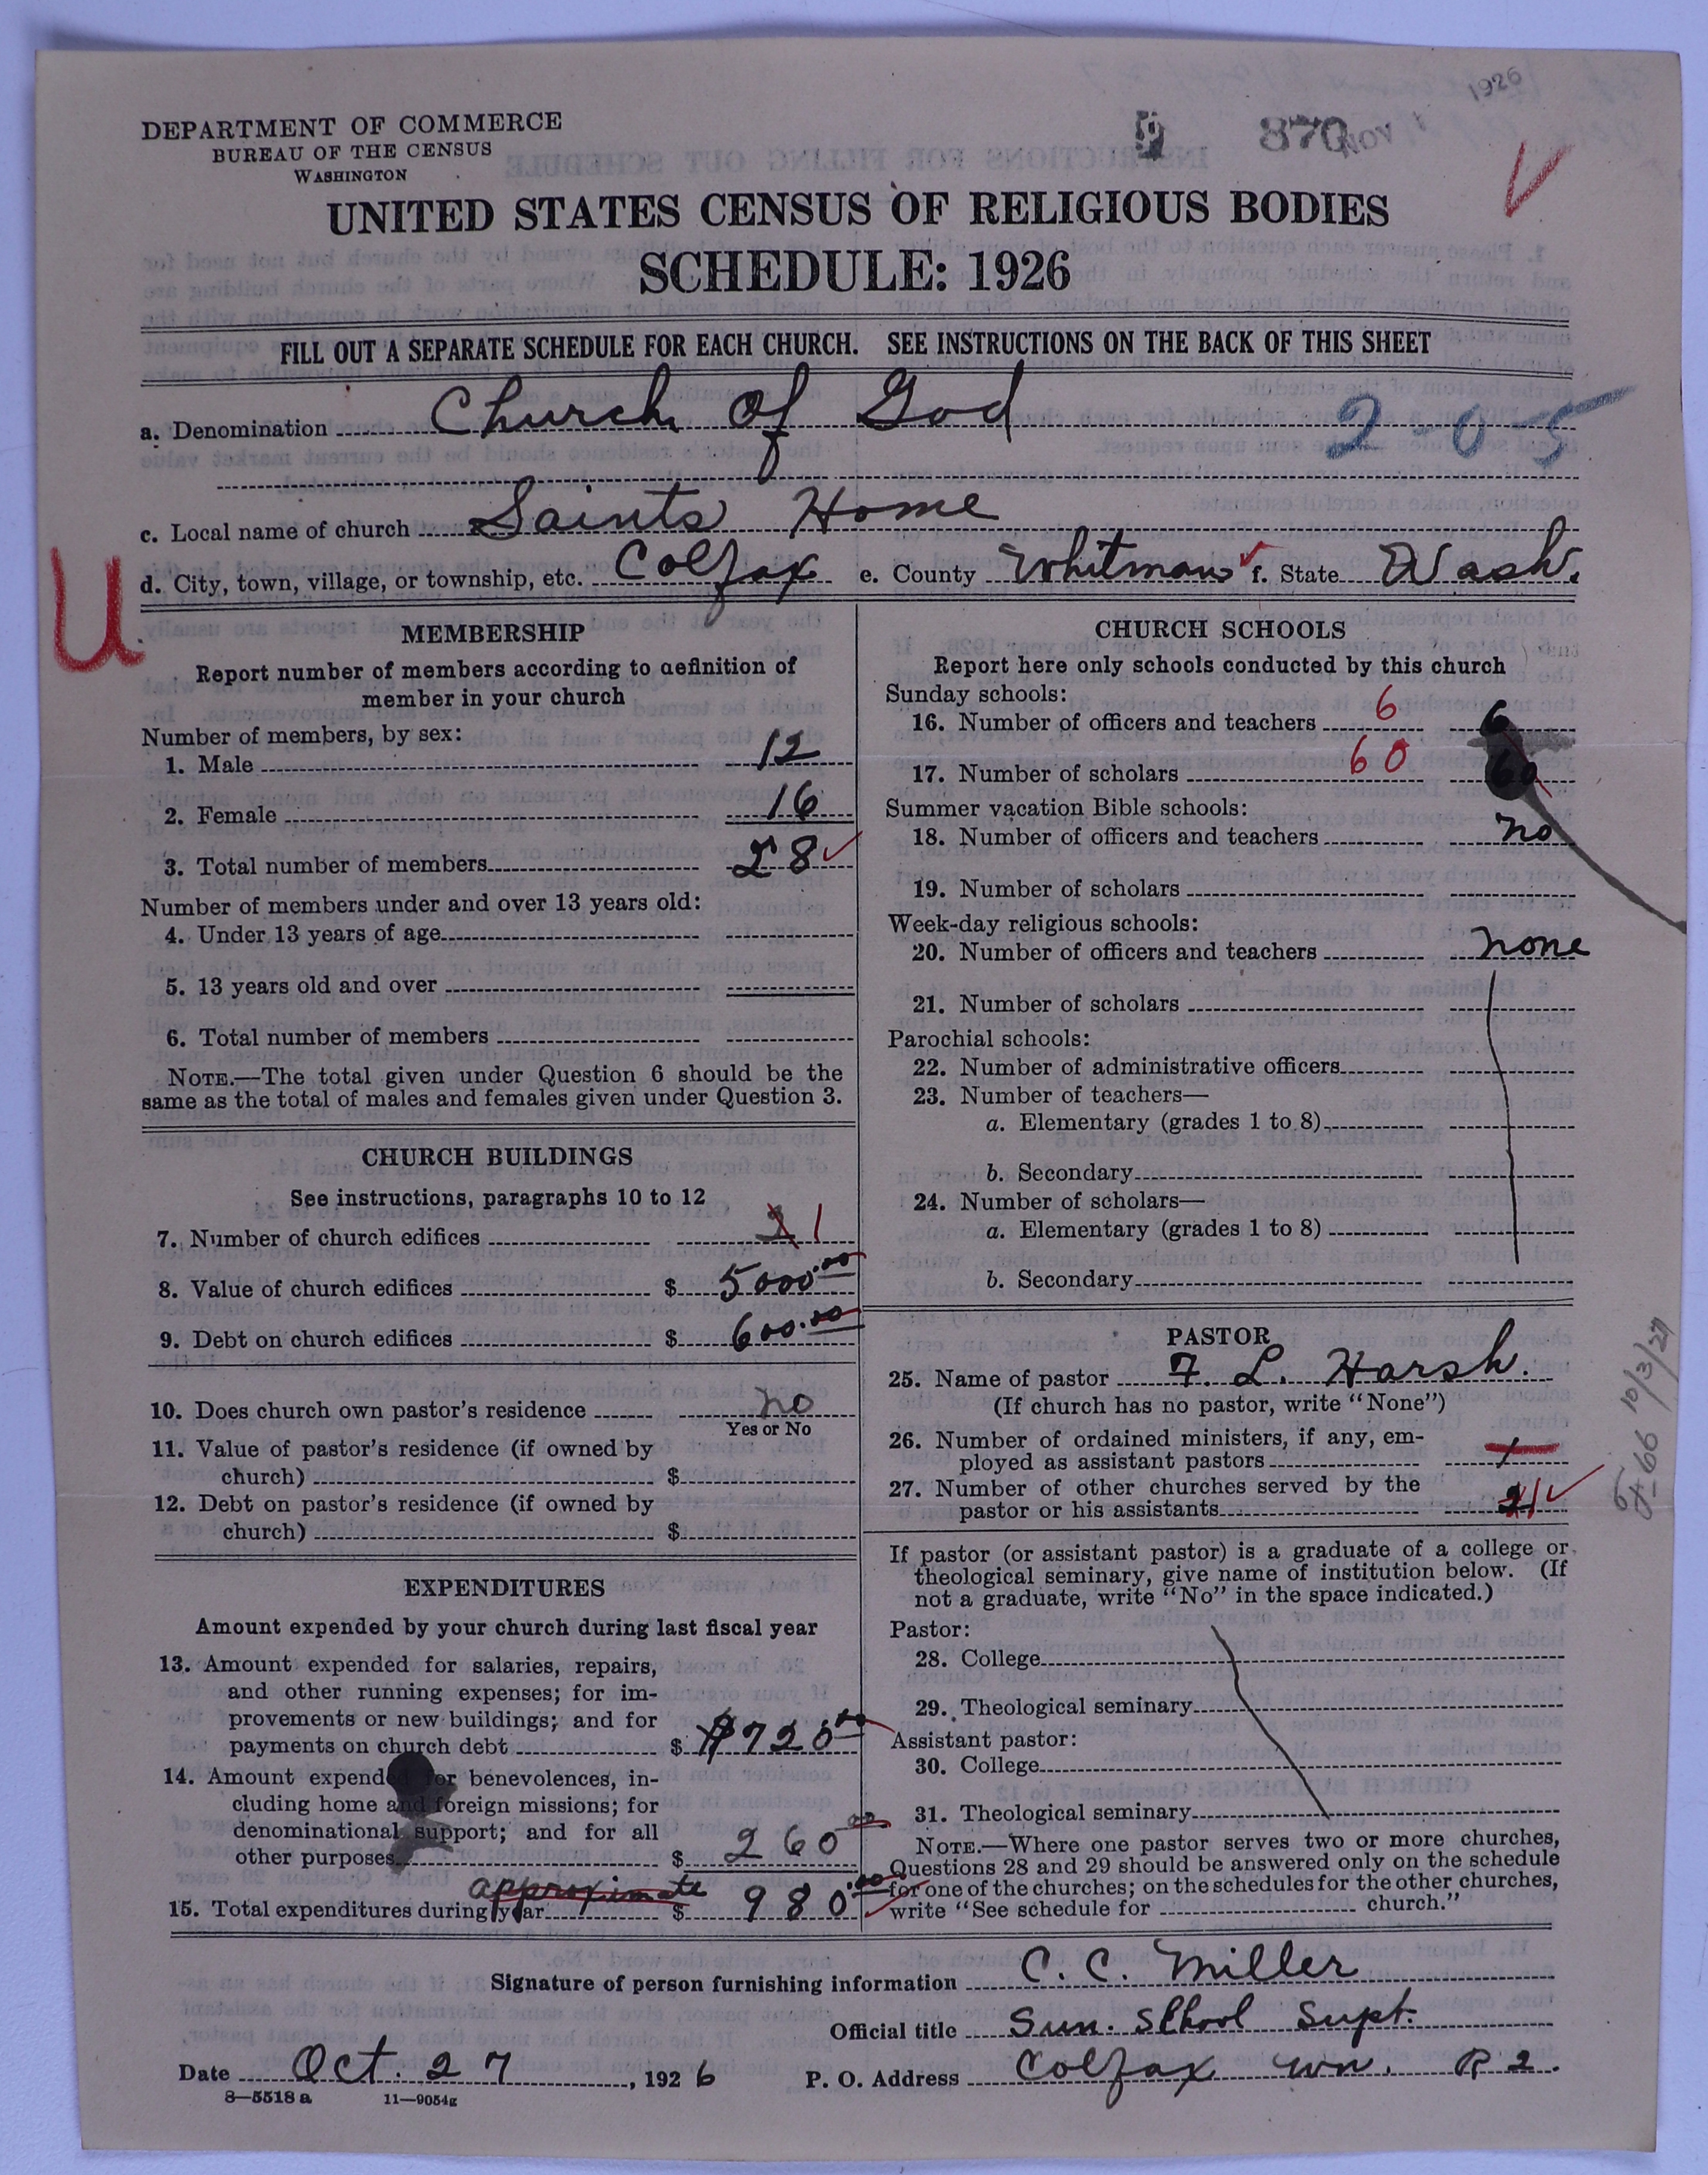 1926
DEPARTMENT OF COMMERCE
BUREAU OF THE CENSUS
WASHINGTON
9 870 NOV
UNITED STATES CENSUS OF RELIGIOUS BODIES
SCHEDULE: 1926
FILL OUT A SEPARATE SCHEDULE FOR EACH CHURCH. SEE INSTRUCTIONS ON THE BACK OF THIS SHEET
a. Denomination Church of God 2-0-5
c. Local name of church Saints Home
d. City, town, village, or township, etc. Colfax e. County Whitman f. State Wash.
U
MEMBERSHIP
Report number of members according to definition of
member in your church
Number of members, by sex:
1. Male 12
2. Female 16
3. Total number of members 28
Number of members under and over 13 years old:
4. Under 13 years of age
5. 13 years old and over
6. Total number of members
NOTE.—The total given under Question 6 should be the
same as the total of males and females given under Question 3.
CHURCH BUILDINGS
See instructions, paragraphs 10 to 12
7. Number of church edifices 1
8. Value of church edifices $ 5000.00
9. Debt on church edifices $ 600.00
10. Does church own pastor's residence no
Yes or No
11. Value of pastor's residence (if owned by
church) $
12. Debt on pastor's residence (if owned by
church) $
EXPENDITURES
Amount expended by your church during last fiscal year
13. Amount expended for salaries, repairs,
and other running expenses; for im-
provements or new buildings; and for
payments on church debt $ $720.00
14. Amount expended for benevolences, in-
cluding home and foreign missions; for
denominational support; and for all
other purposes $ 260.00
approximate
15. Total expenditures during year $ 980.00
CHURCH SCHOOLS
Report here only schools conducted by this church
Sunday schools:
16. Number of officers and teachers 6 6
17. Number of scholars 60 60
Summer vacation Bible schools:
18. Number of officers and teachers no
19. Number of scholars
Week-day religious schools:
20. Number of officers and teachers none
21. Number of scholars
Parochial schools:
22. Number of administrative officers
23. Number of teachers—
a. Elementary (grades 1 to 8)
b. Secondary
24. Number of scholars—
a. Elementary (grades 1 to 8)
b. Secondary
PASTOR
25. Name of pastor F. L. Harsh.
(If church has no pastor, write "None")
26. Number of ordained ministers, if any, em-
ployed as assistant pastors
27. Number of other churches served by the
pastor or his assistants 1
If pastor (or assistant pastor) is a graduate of a college or
theological seminary, give name of institution below. (If
not a graduate, write "No" in the space indicated.)
Pastor:
28. College
29. Theological seminary
Assistant pastor:
30. College
31. Theological seminary
NOTE.—Where one pastor serves two or more churches,
Questions 28 and 29 should be answered only on the schedule
for one of the churches; on the schedules for the other churches,
write "See schedule for church."
10/3/27
Signature of person furnishing information C. C. Miller
Official title Sun. School Supt.
Date Oct. 27, 1926 P. O. Address Colfax Wn. R 2.
8—5518 a 11—9054g